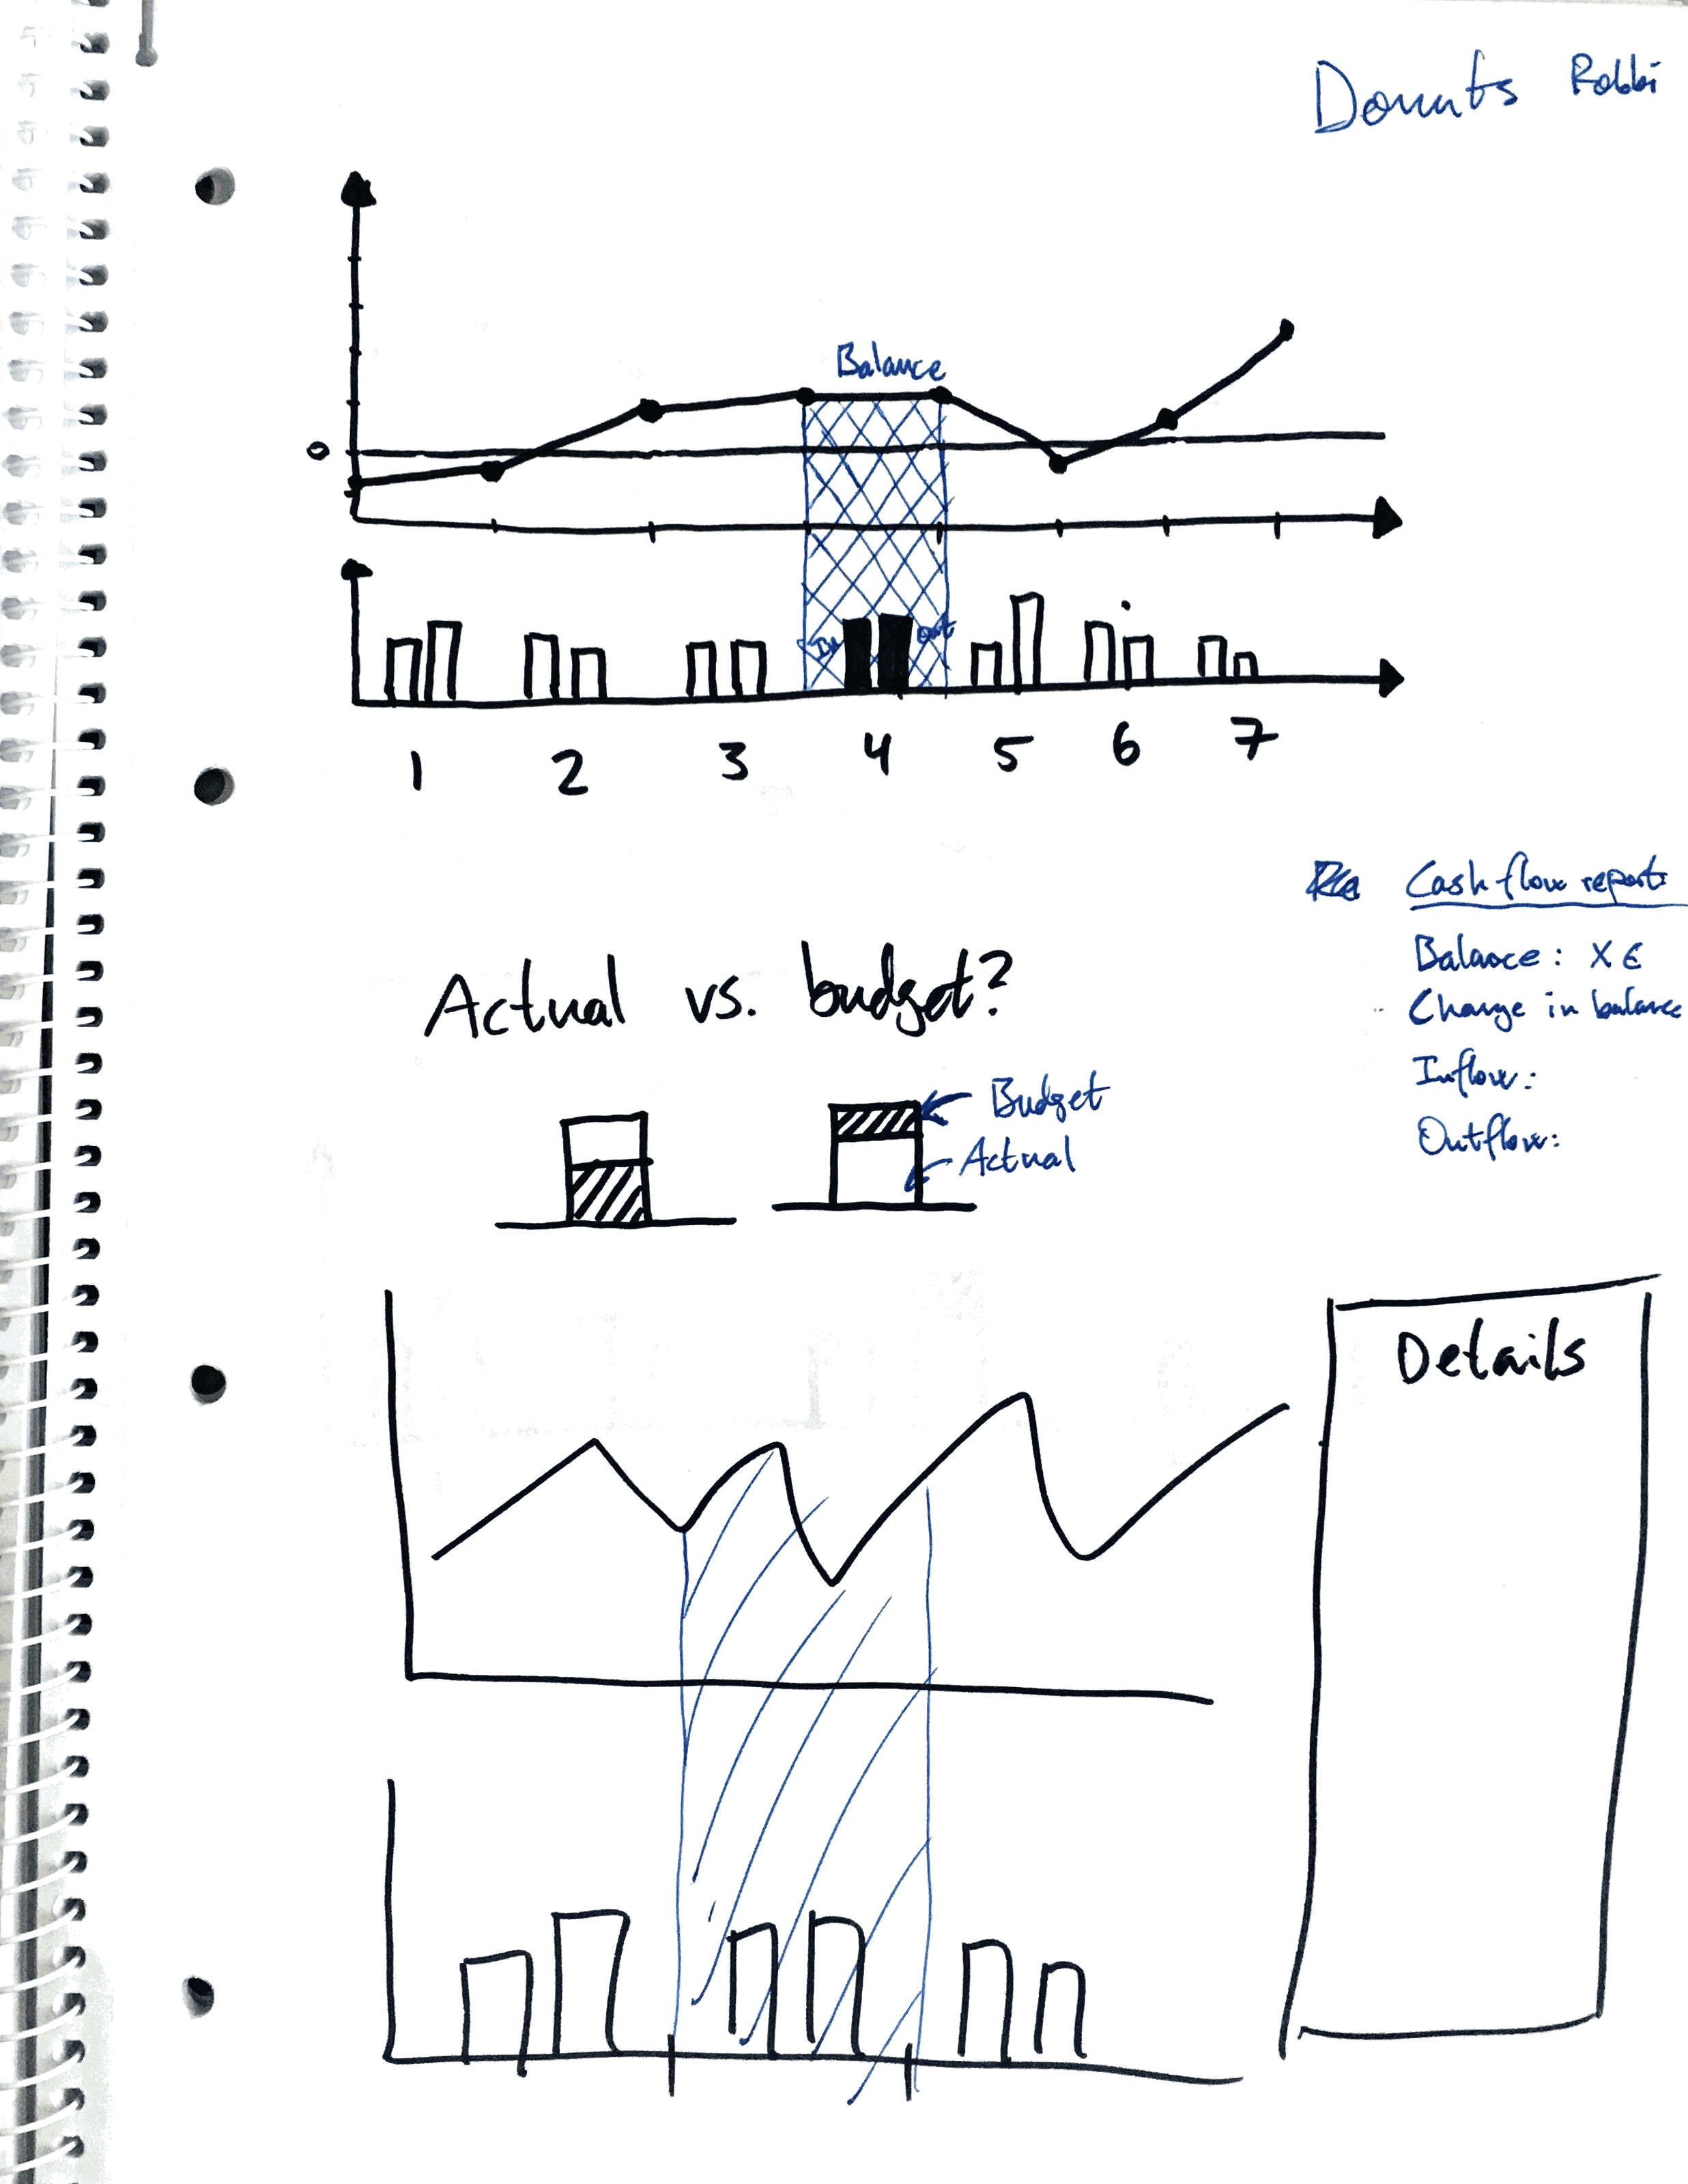 Donuts Robbi
Balance
0
In out
1 2 3 4 5 6 7
Cash flow report
Balance: X €
Change in balance
Inflow:
Outflow:
Actual vs. budget?
Budget
Actual
Details